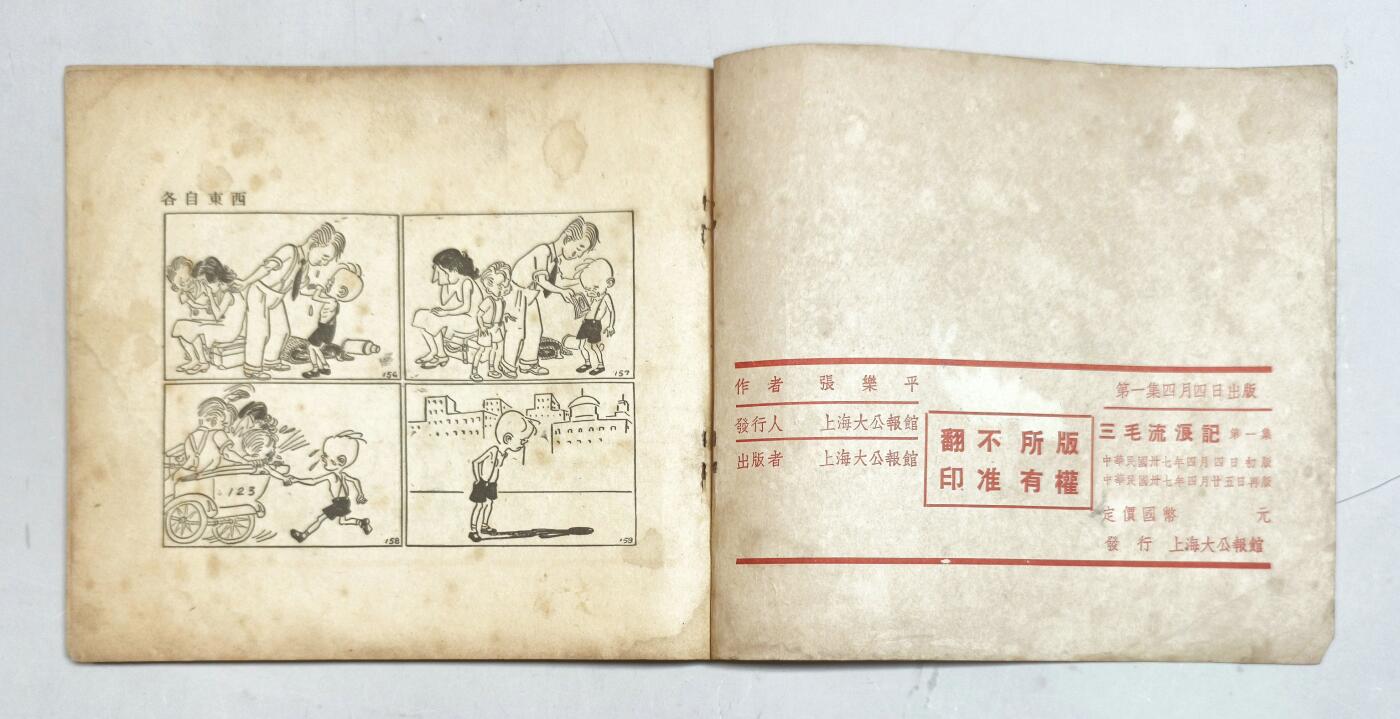 各自東西
156
157
123
158
159
作者 張樂平
發行人 上海大公報館
出版者 上海大公報館
翻不所版
印准有權
第一集四月四日出版
三毛流浪記 第一集
中華民國卅七年四月四日初版
中華民國卅七年四月廿五日再版
定價國幣 元
發行 上海大公報館